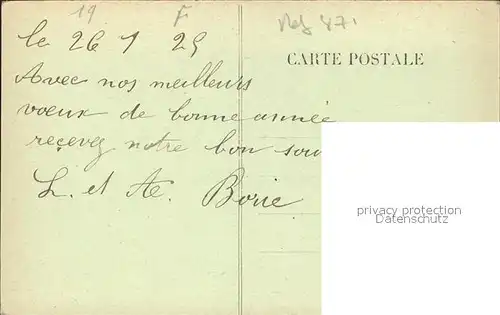 19 F
le 26 1 25
CARTE POSTALE
Avec nos meilleurs
voeux de bonne année
recevez notre bon sou
L. et A.
privacy protection
Datenschutz